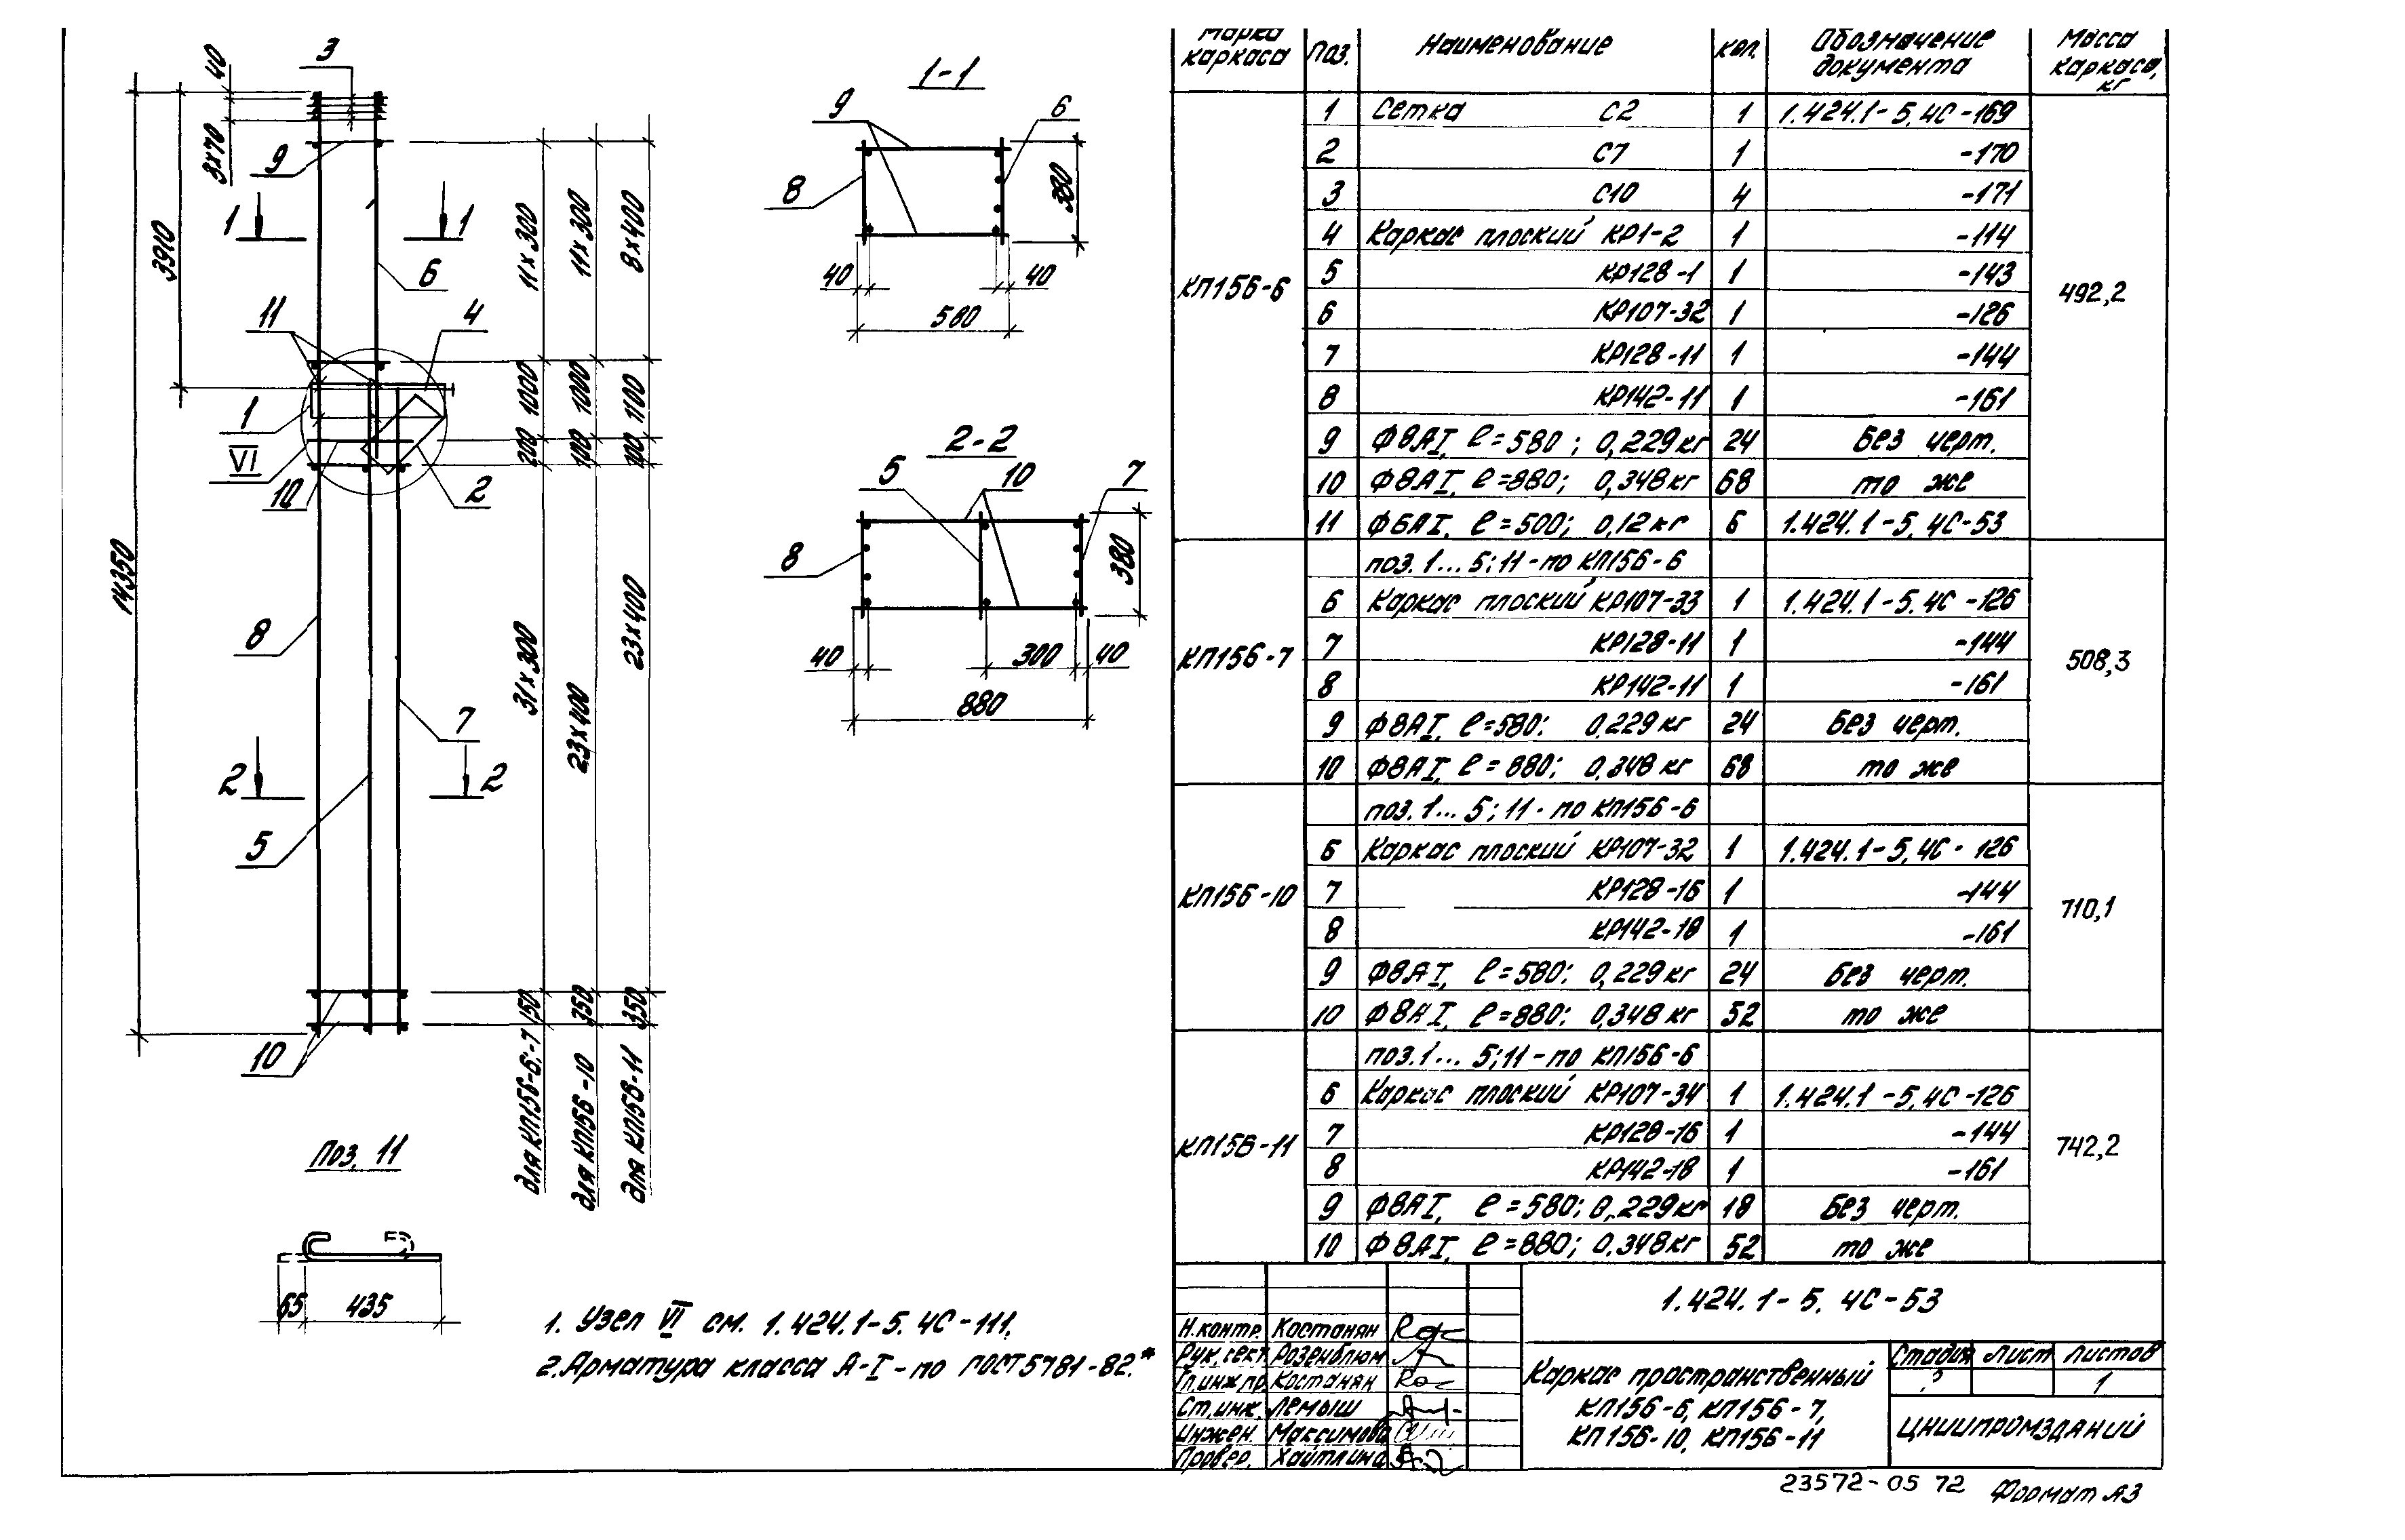 3
40
3х70
9
3910
1
1
6
11
4
1
VI
10
2
14350
8
7
2
2
5
10
11х300
11х300
8х400
1000
1000
1100
200
100
100
31х300
23х400
23х400
150
350
350
для КП156-6;-7
для КП156-10
для КП156-11
1-1
9
6
8
380
40
40
580
2-2
5
10
7
8
380
40
300
40
880
Поз. 11
65
435
1. Узел VI см. 1.424.1-5. 4С-111.
2. Арматура класса А-I - по ГОСТ 5781-82.*
Марка каркаса Поз. Наименование Кол. Обозначение документа Масса каркаса, кг
КП156-6 492,2
1 Сетка С2 1 1.424.1-5. 4С-169
2 С7 1 -170
3 С10 4 -171
4 Каркас плоский КР1-2 1 -114
5 КР128-1 1 -143
6 КР107-32 1 -126
7 КР128-11 1 -144
8 КР142-11 1 -161
9 Ф8АI, ℓ=580; 0,229кг 24 Без черт.
10 Ф8АI, ℓ=880; 0,348кг 68 то же
11 Ф6АI, ℓ=500; 0,12кг 6 1.424.1-5. 4С-53
КП156-7 508,3
поз. 1... 5; 11 - по КП156-6
6 Каркас плоский КР107-33 1 1.424.1-5. 4С-126
7 КР128-11 1 -144
8 КР142-11 1 -161
9 Ф8АI, ℓ=580; 0,229кг 24 Без черт.
10 Ф8АI, ℓ=880; 0,348кг 68 то же
КП156-10 710,1
поз. 1... 5; 11 - по КП156-6
6 Каркас плоский КР107-32 1 1.424.1-5. 4С-126
7 КР128-16 1 -144
8 КР142-18 1 -161
9 Ф8АI, ℓ=580; 0,229кг 24 Без черт.
10 Ф8АI, ℓ=880; 0,348кг 52 то же
КП156-11 742,2
поз. 1... 5; 11 - по КП156-6
6 Каркас плоский КР107-34 1 1.424.1-5. 4С-126
7 КР128-16 1 -144
8 КР142-18 1 -161
9 Ф8АI, ℓ=580; 0,229кг 18 Без черт.
10 Ф8АI, ℓ=880; 0,348кг 52 то же
1.424.1-5. 4С-53
Н.контр. Костанян
Рук.сект. Розенблюм
Гл.инж.пр. Костанян
Ст.инж. Лемыш
Инжен. Максимова
Провер. Хайтлина
Каркас пространственный
КП156-6, КП156-7,
КП156-10, КП156-11
Стадия Лист Листов
1
ЦНИИПРОМЗДАНИЙ
23572-05 72
Формат А3